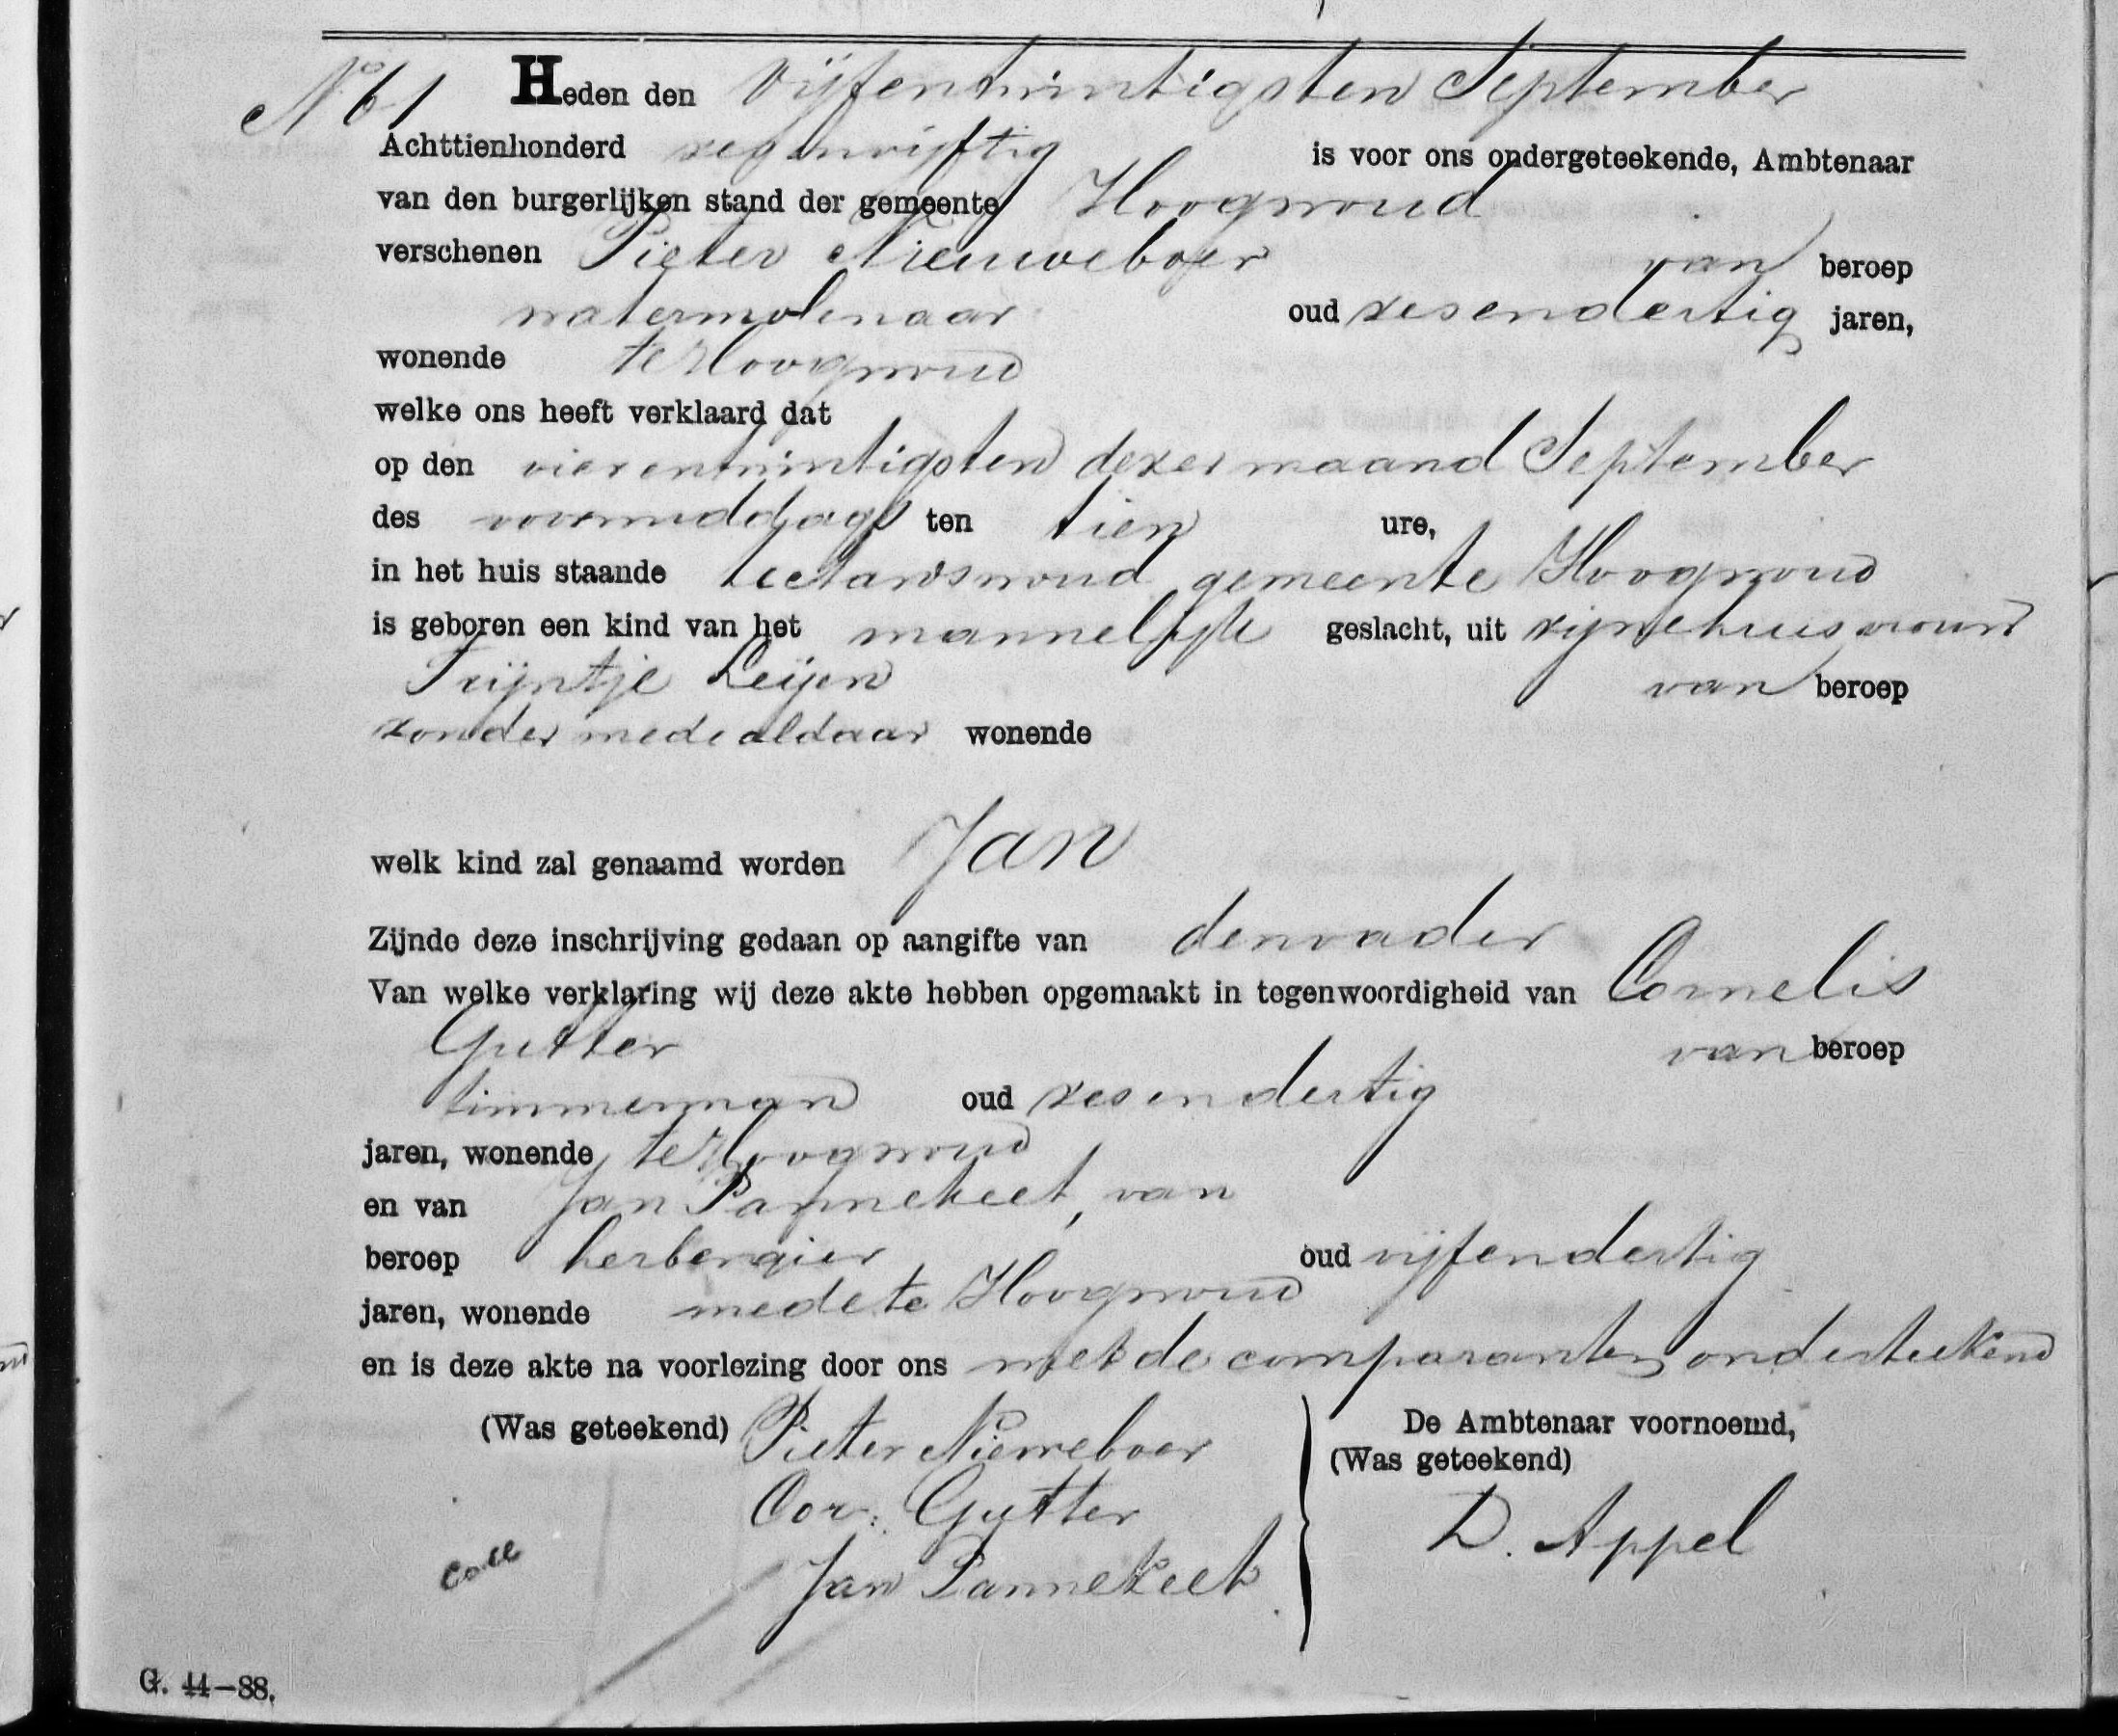 No 61 Heden den vijfentwintigsten September
Achttienhonderd is voor ons ondergeteekende, Ambtenaar
van den burgerlijken stand der gemeente Hoogwoud
verschenen Pieter Nieuweboer van beroep
watermolenaar oud zesendertig jaren,
wonende te Hoogwoud
welke ons heeft verklaard dat
op den vierentwintigsten dezer maand September
des voormiddags ten tien ure,
in het huis staande gemeente Hoogwoud
is geboren een kind van het mannelijk geslacht, uit zijne huisvrouw
Trijntje Leijen van beroep
zonder mede aldaar wonende
welk kind zal genaamd worden Jan
Zijnde deze inschrijving gedaan op aangifte van den vader
Van welke verklaring wij deze akte hebben opgemaakt in tegenwoordigheid van Cornelis
Gutter van beroep
timmerman oud zesendertig
jaren, wonende te Hoogwoud
en van Jan Pannekeet, van
beroep herbergier oud vijfendertig
jaren, wonende mede te Hoogwoud
en is deze akte na voorlezing door ons met de comparanten onderteekend
(Was geteekend) Pieter Nieuweboer
Cor: Gutter
Jan Pannekeet
De Ambtenaar voornoemd,
(Was geteekend)
D. Appel
G. 44-88.